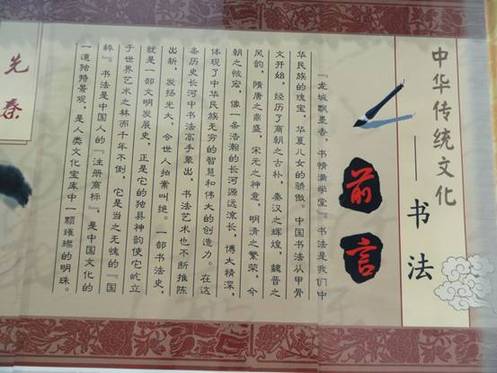 中华传统文化
——书法
前言
『龙城飘墨香，书情满学堂』书法是我们中
华民族的瑰宝，华夏儿女的骄傲。中国书法从甲骨
文开始，经历了商朝之古朴，秦汉之辉煌，魏晋之
风韵，隋唐之鼎盛，宋元之神意，明清之繁荣，今
朝之恢宏，像一条浩瀚的长河源远流长，博大精深，
体现了中华民族无穷的智慧和伟大的创造力。在这
条历史长河中书法高手辈出，书法艺术也不断推陈
出新，发扬光大，令世人拍案叫绝。一部书法史，
就是一部文明发展史，正是它的独具神韵使它屹立
于世界艺术之林而千年不倒，它是当之无愧的『国
粹』。书法是中国人的『注册商标』，是中国文化的
一道独特景观，是人类文化宝库中一颗璀璨的明珠。
先秦